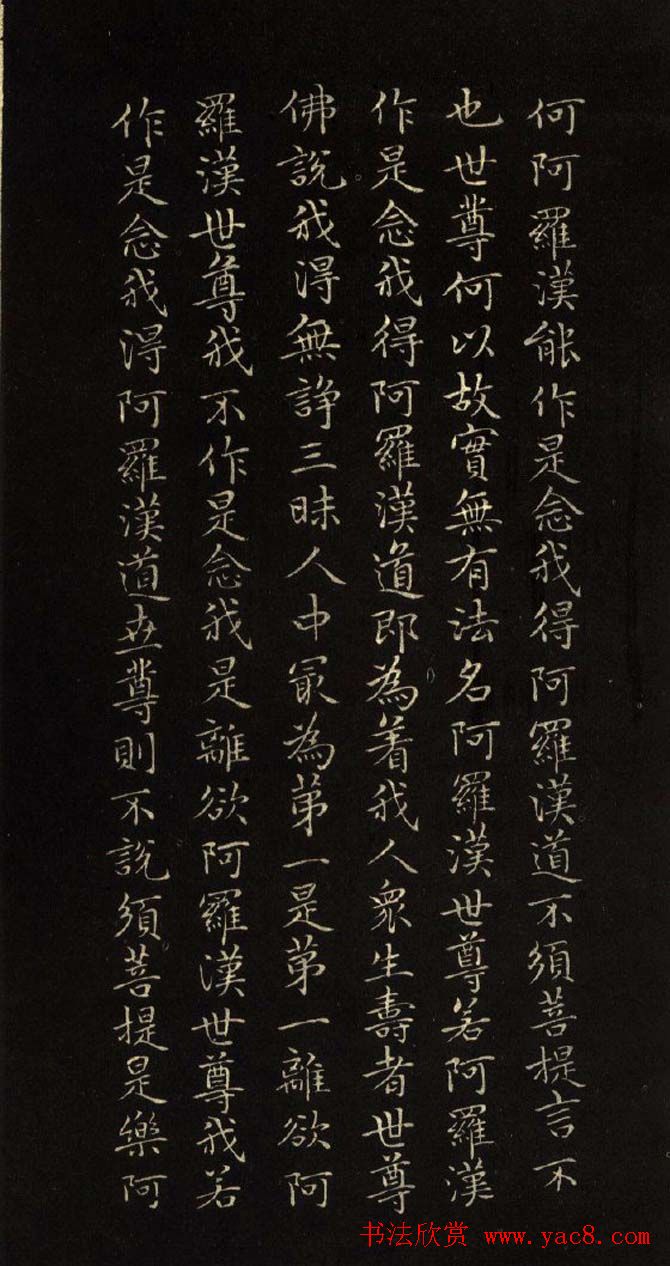 何阿羅漢能作是念我得阿羅漢道不須菩提言不
也世尊何以故實無有法名阿羅漢世尊若阿羅漢
作是念我得阿羅漢道即為着我人衆生壽者世尊
佛說我得無諍三昧人中最為第一是第一離欲阿
羅漢世尊我不作是念我是離欲阿羅漢世尊我若
作是念我得阿羅漢道世尊則不說須菩提是樂阿
书法欣赏 www.yac8.com